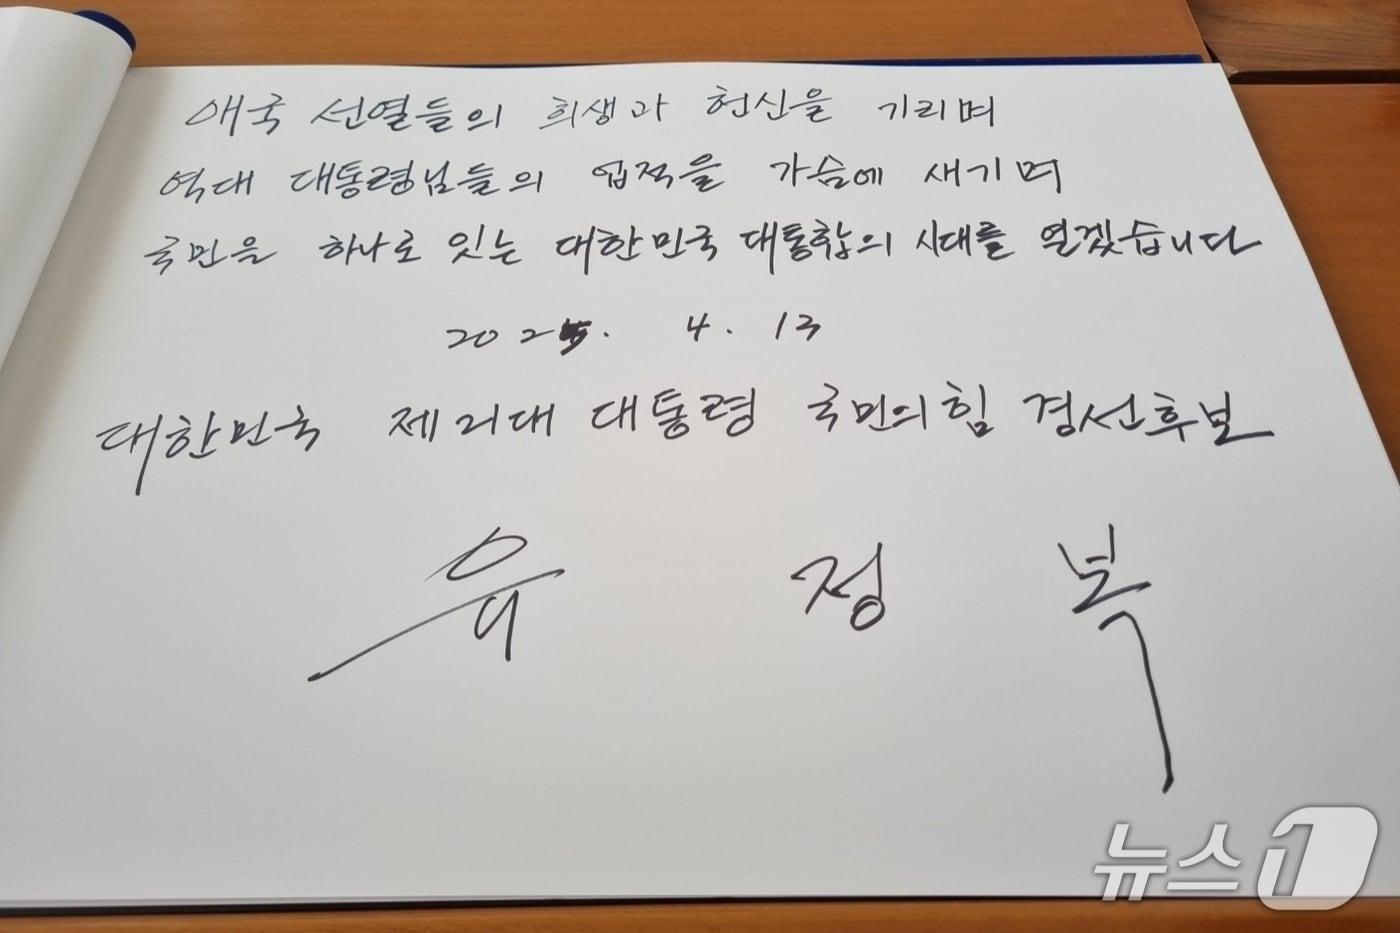 애국 선열들의 희생과 헌신을 기리며
역대 대통령님들의 업적을 가슴에 새기며
국민을 하나로 잇는 대한민국 대통합의 시대를 열겠습니다
2025. 4. 13
대한민국 제21대 대통령 국민의힘 경선후보
유 정 복
뉴스1